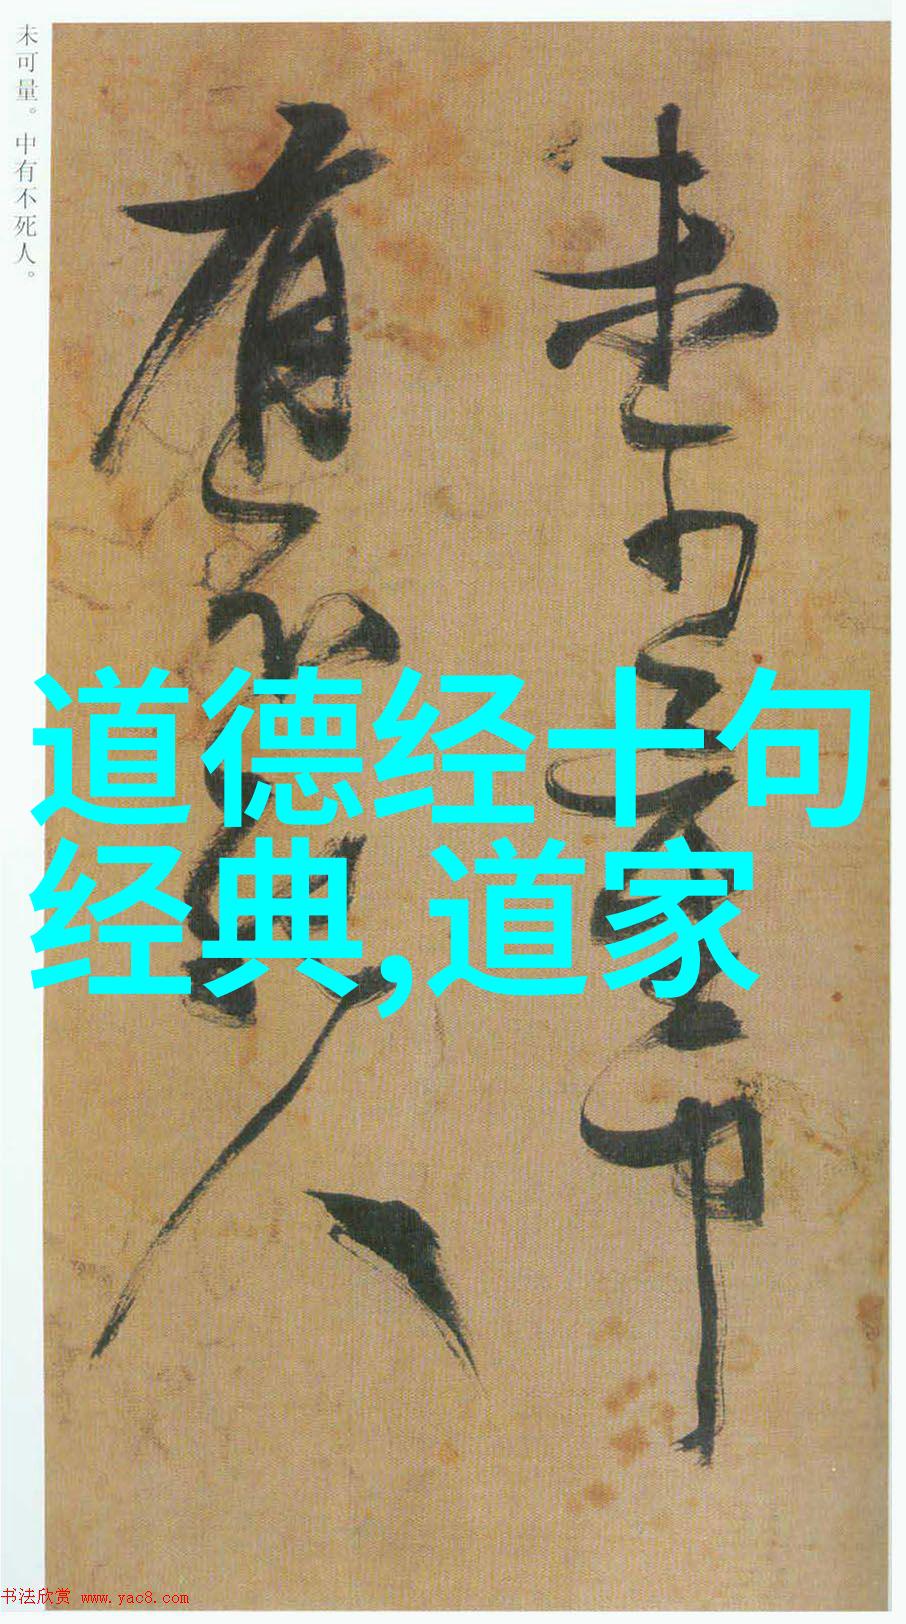 未可量。中有不死人。
未可量中
有不死人
道德经十句
经典,道家
书法欣赏 www.yac8.com